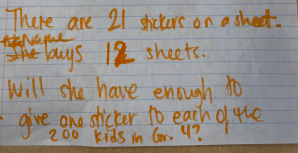 There are 21 stickers on a sheet.
Name
She buys 12 sheets.
Will she have enough to
give one sticker to each of the
200 kids in Gr. 4?